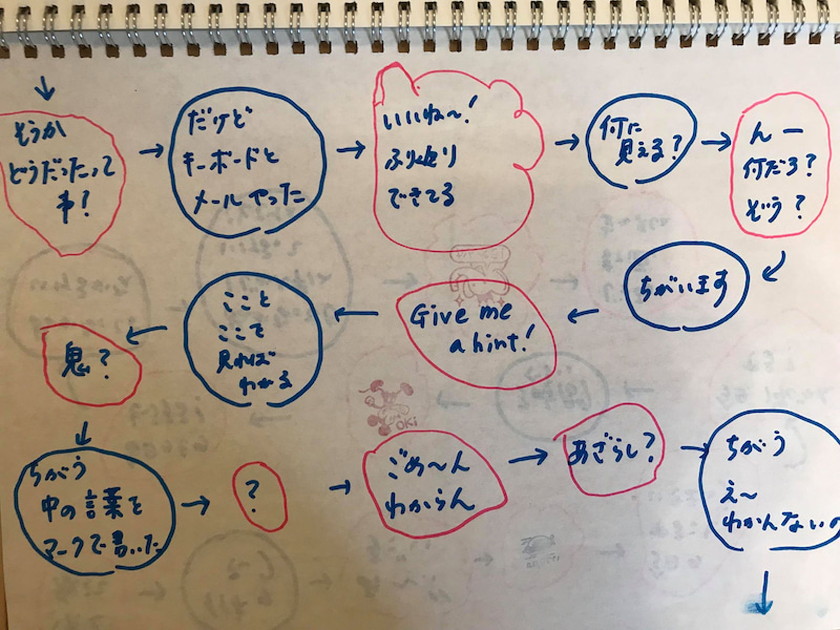 そうか
どうだったって
事!
だけど
キーボードと
メールやった
いいね〜!
ふり返り
できてる
何に
見える?
んー
何だろ?
ぞう?
ちがいます
Give me
a hint!
ここと
ここで
見れば
わかる
鬼?
ちがう
中の言葉を
マークで書いた
?
ごめ〜ん
わからん
あざらし?
ちがう
え〜
わかんないの